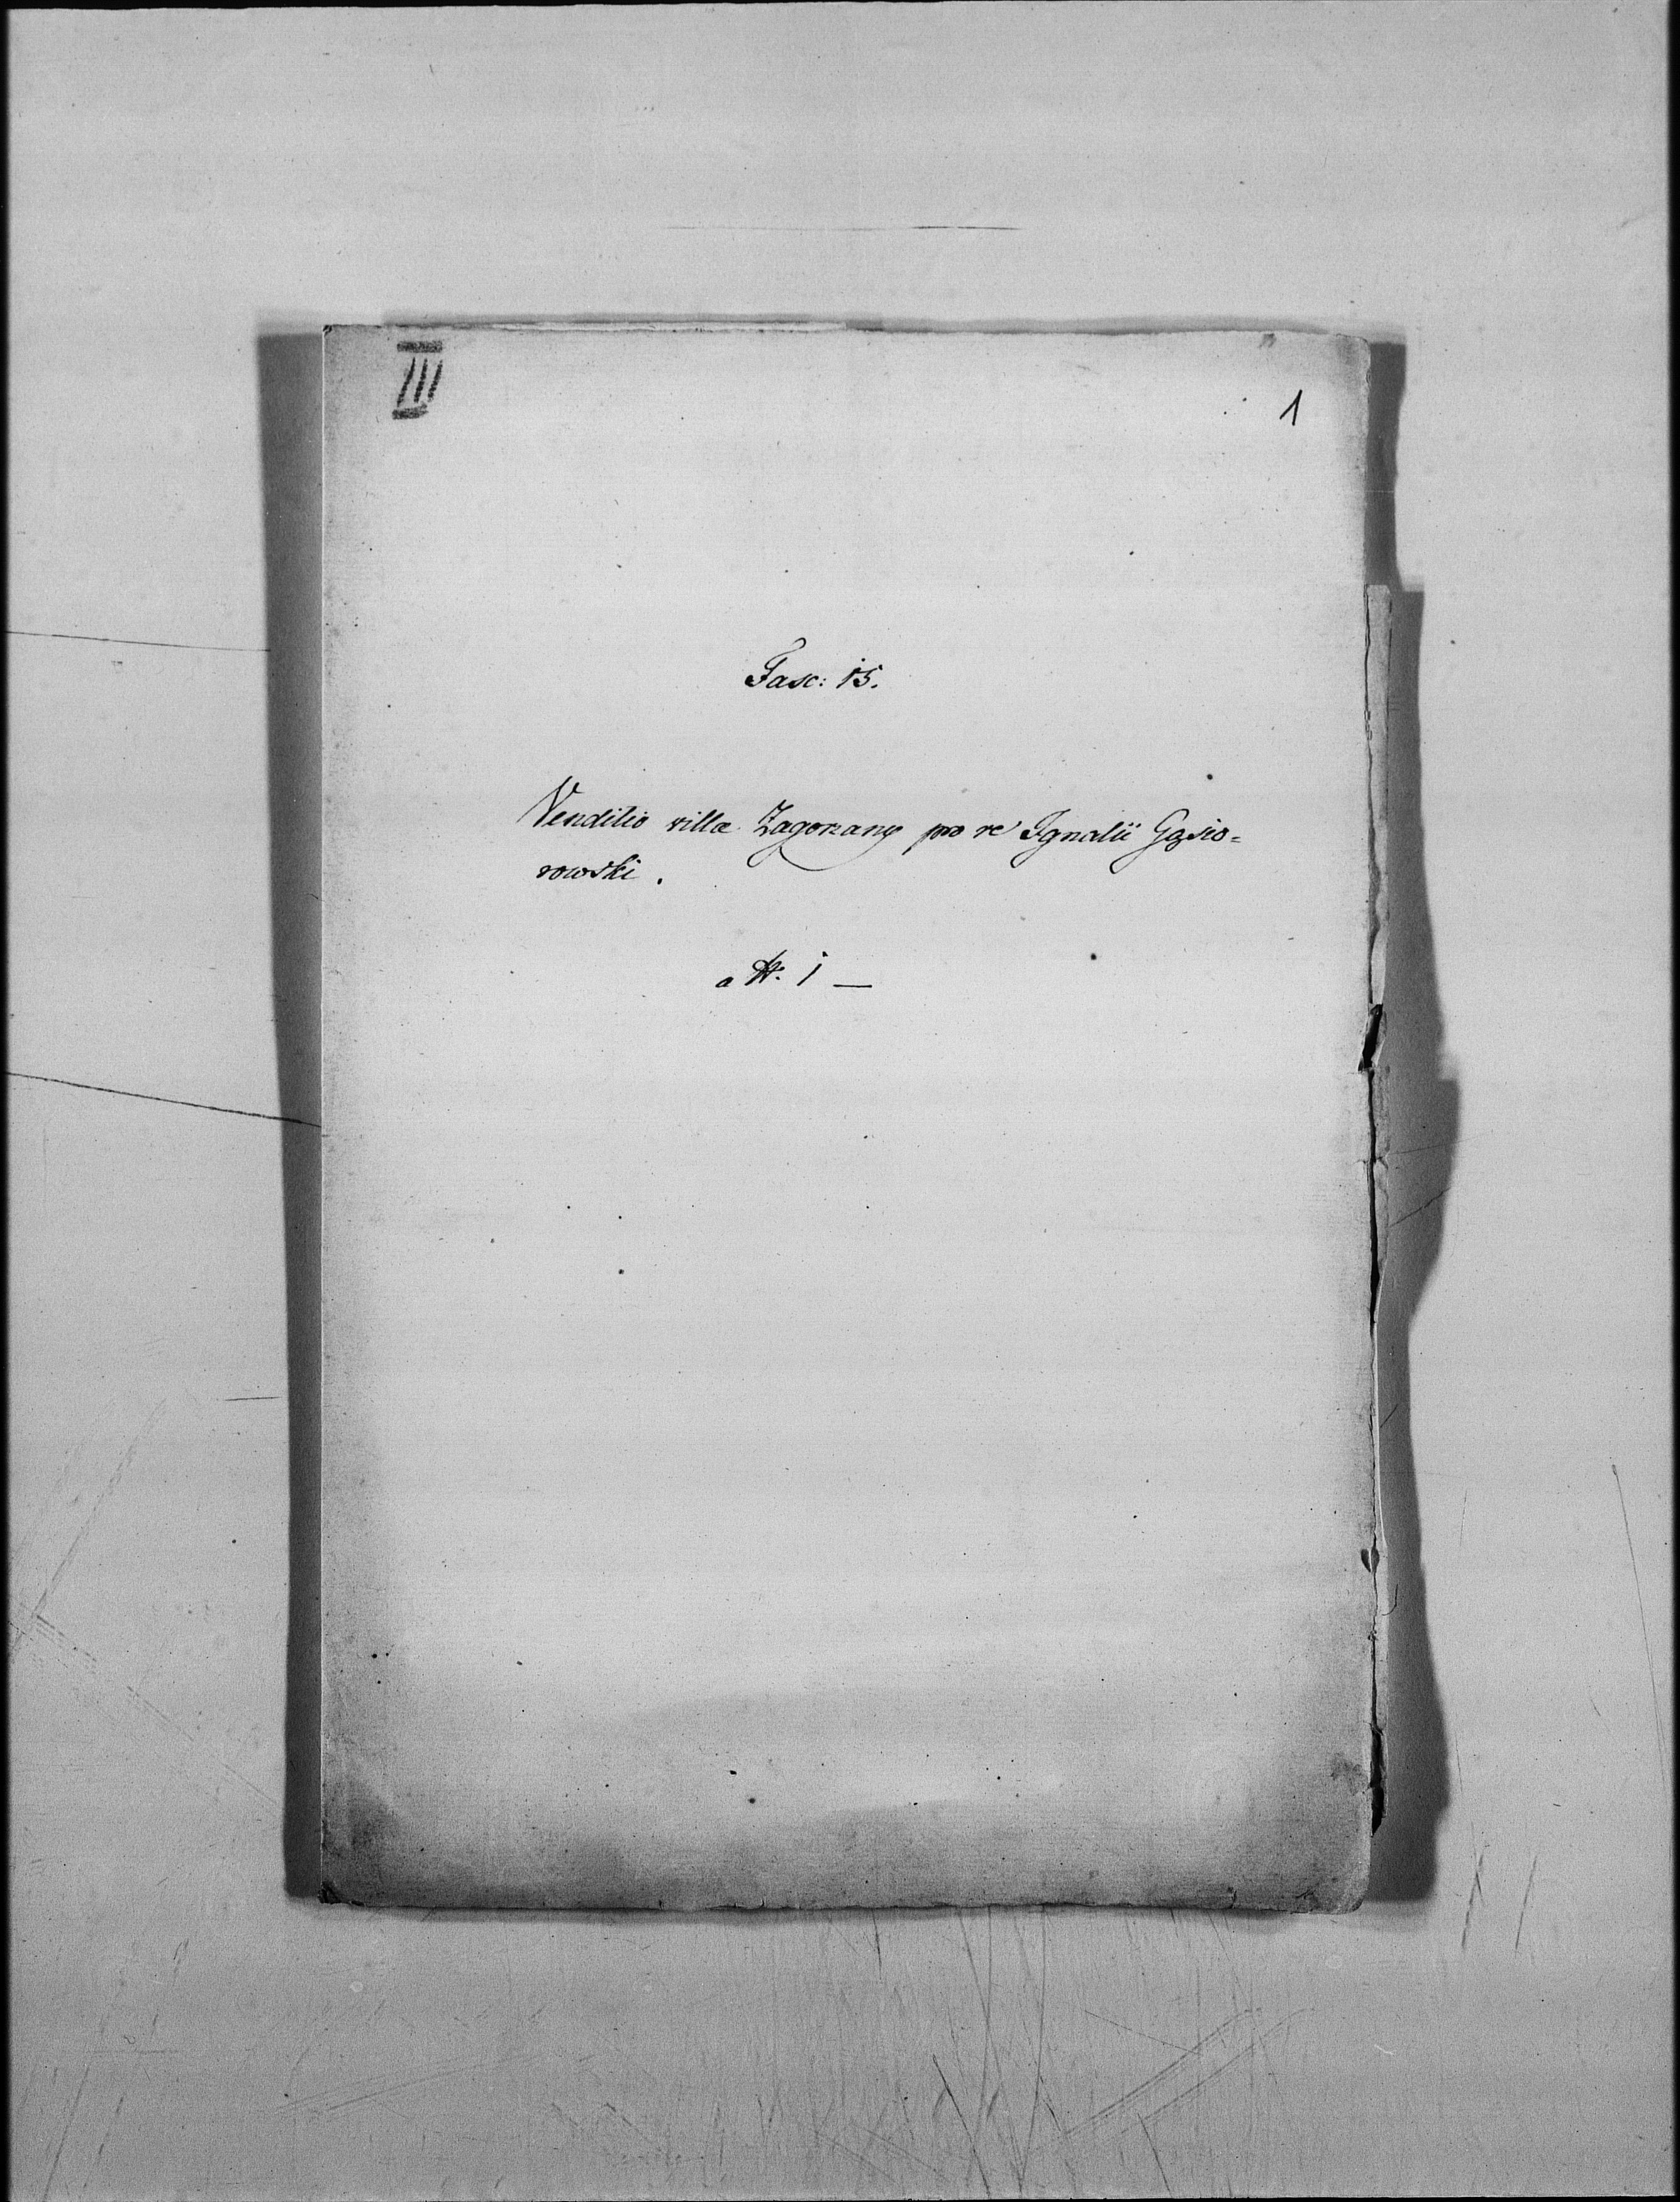 III
1
Fasc: 15.
Venditio villæ Zagorzany pro re Ignatii Gąsio=
rowski.
a N. 1 —